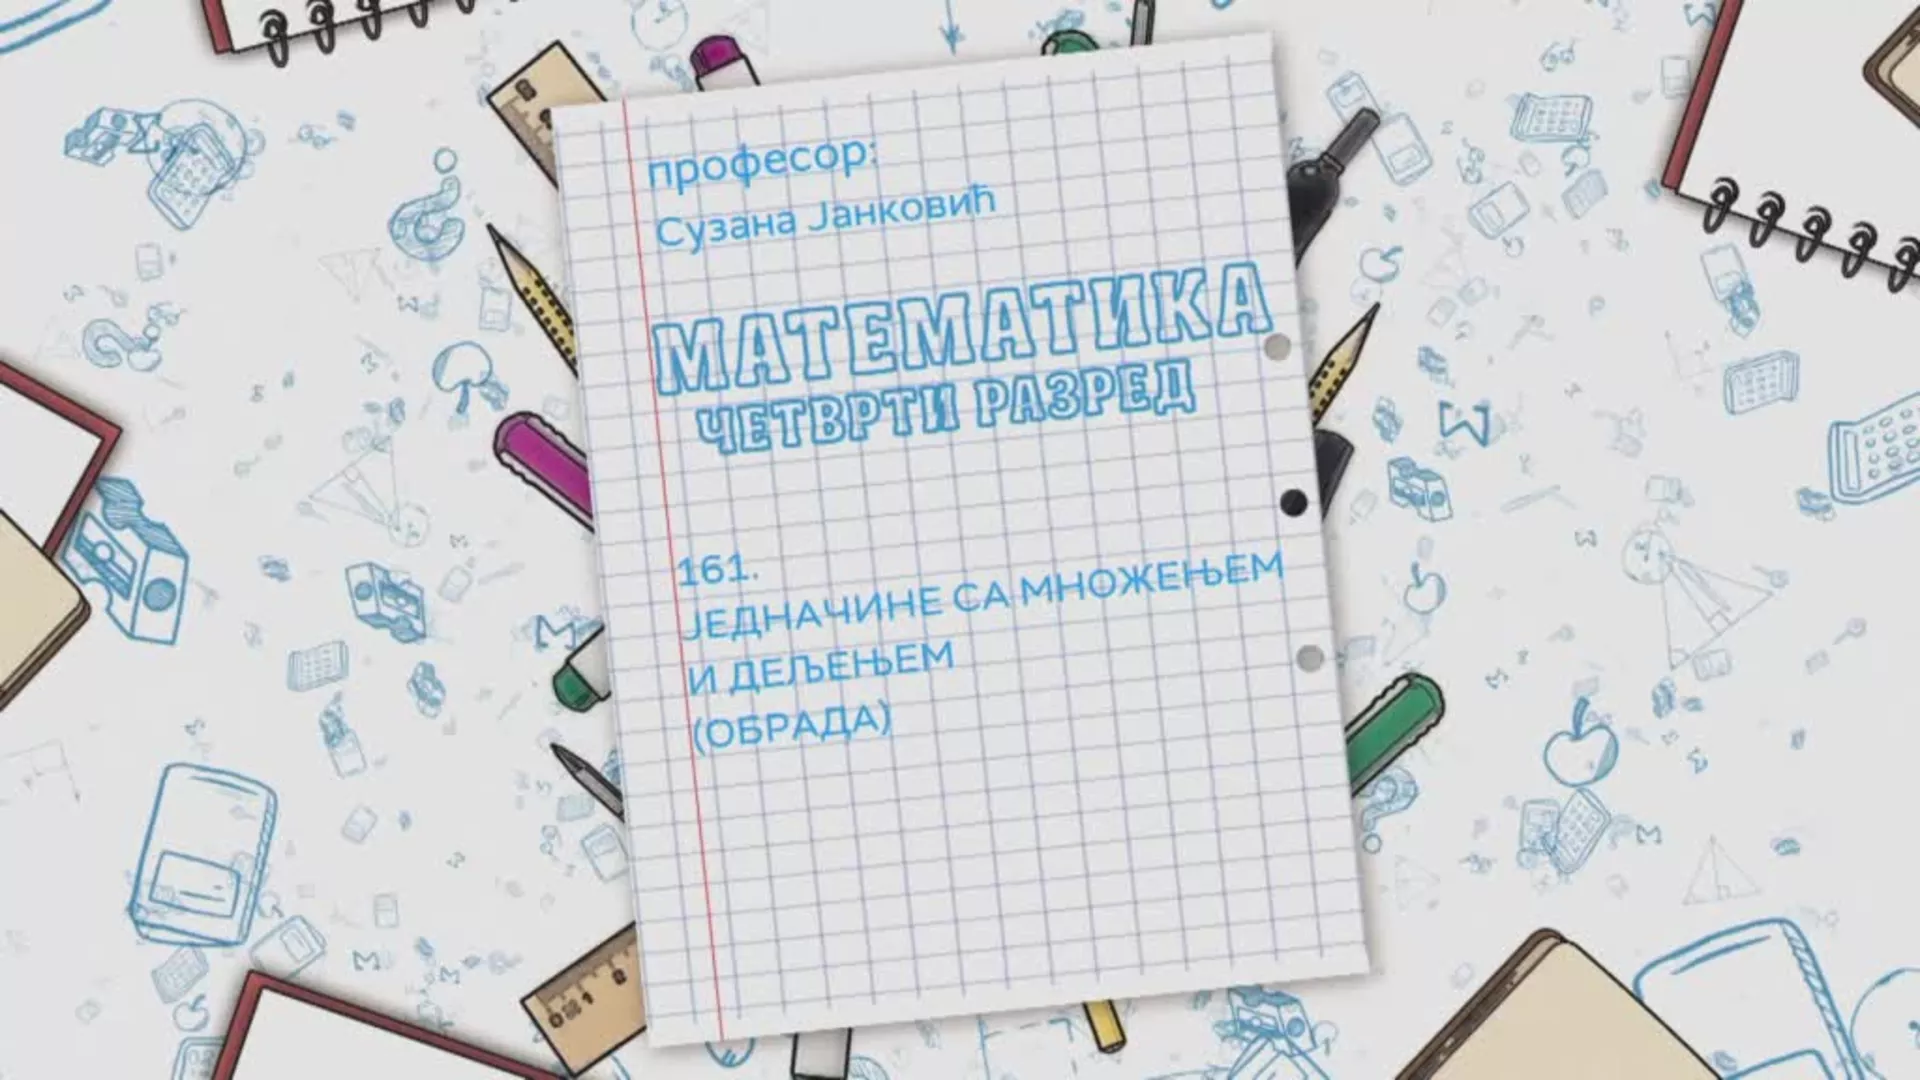 професор:
Сузана Јанковић
МАТЕМАТИКА
ЧЕТВРТИ РАЗРЕД
161.
ЈЕДНАЧИНЕ СА МНОЖЕЊЕМ
И ДЕЉЕЊЕМ
(ОБРАДА)